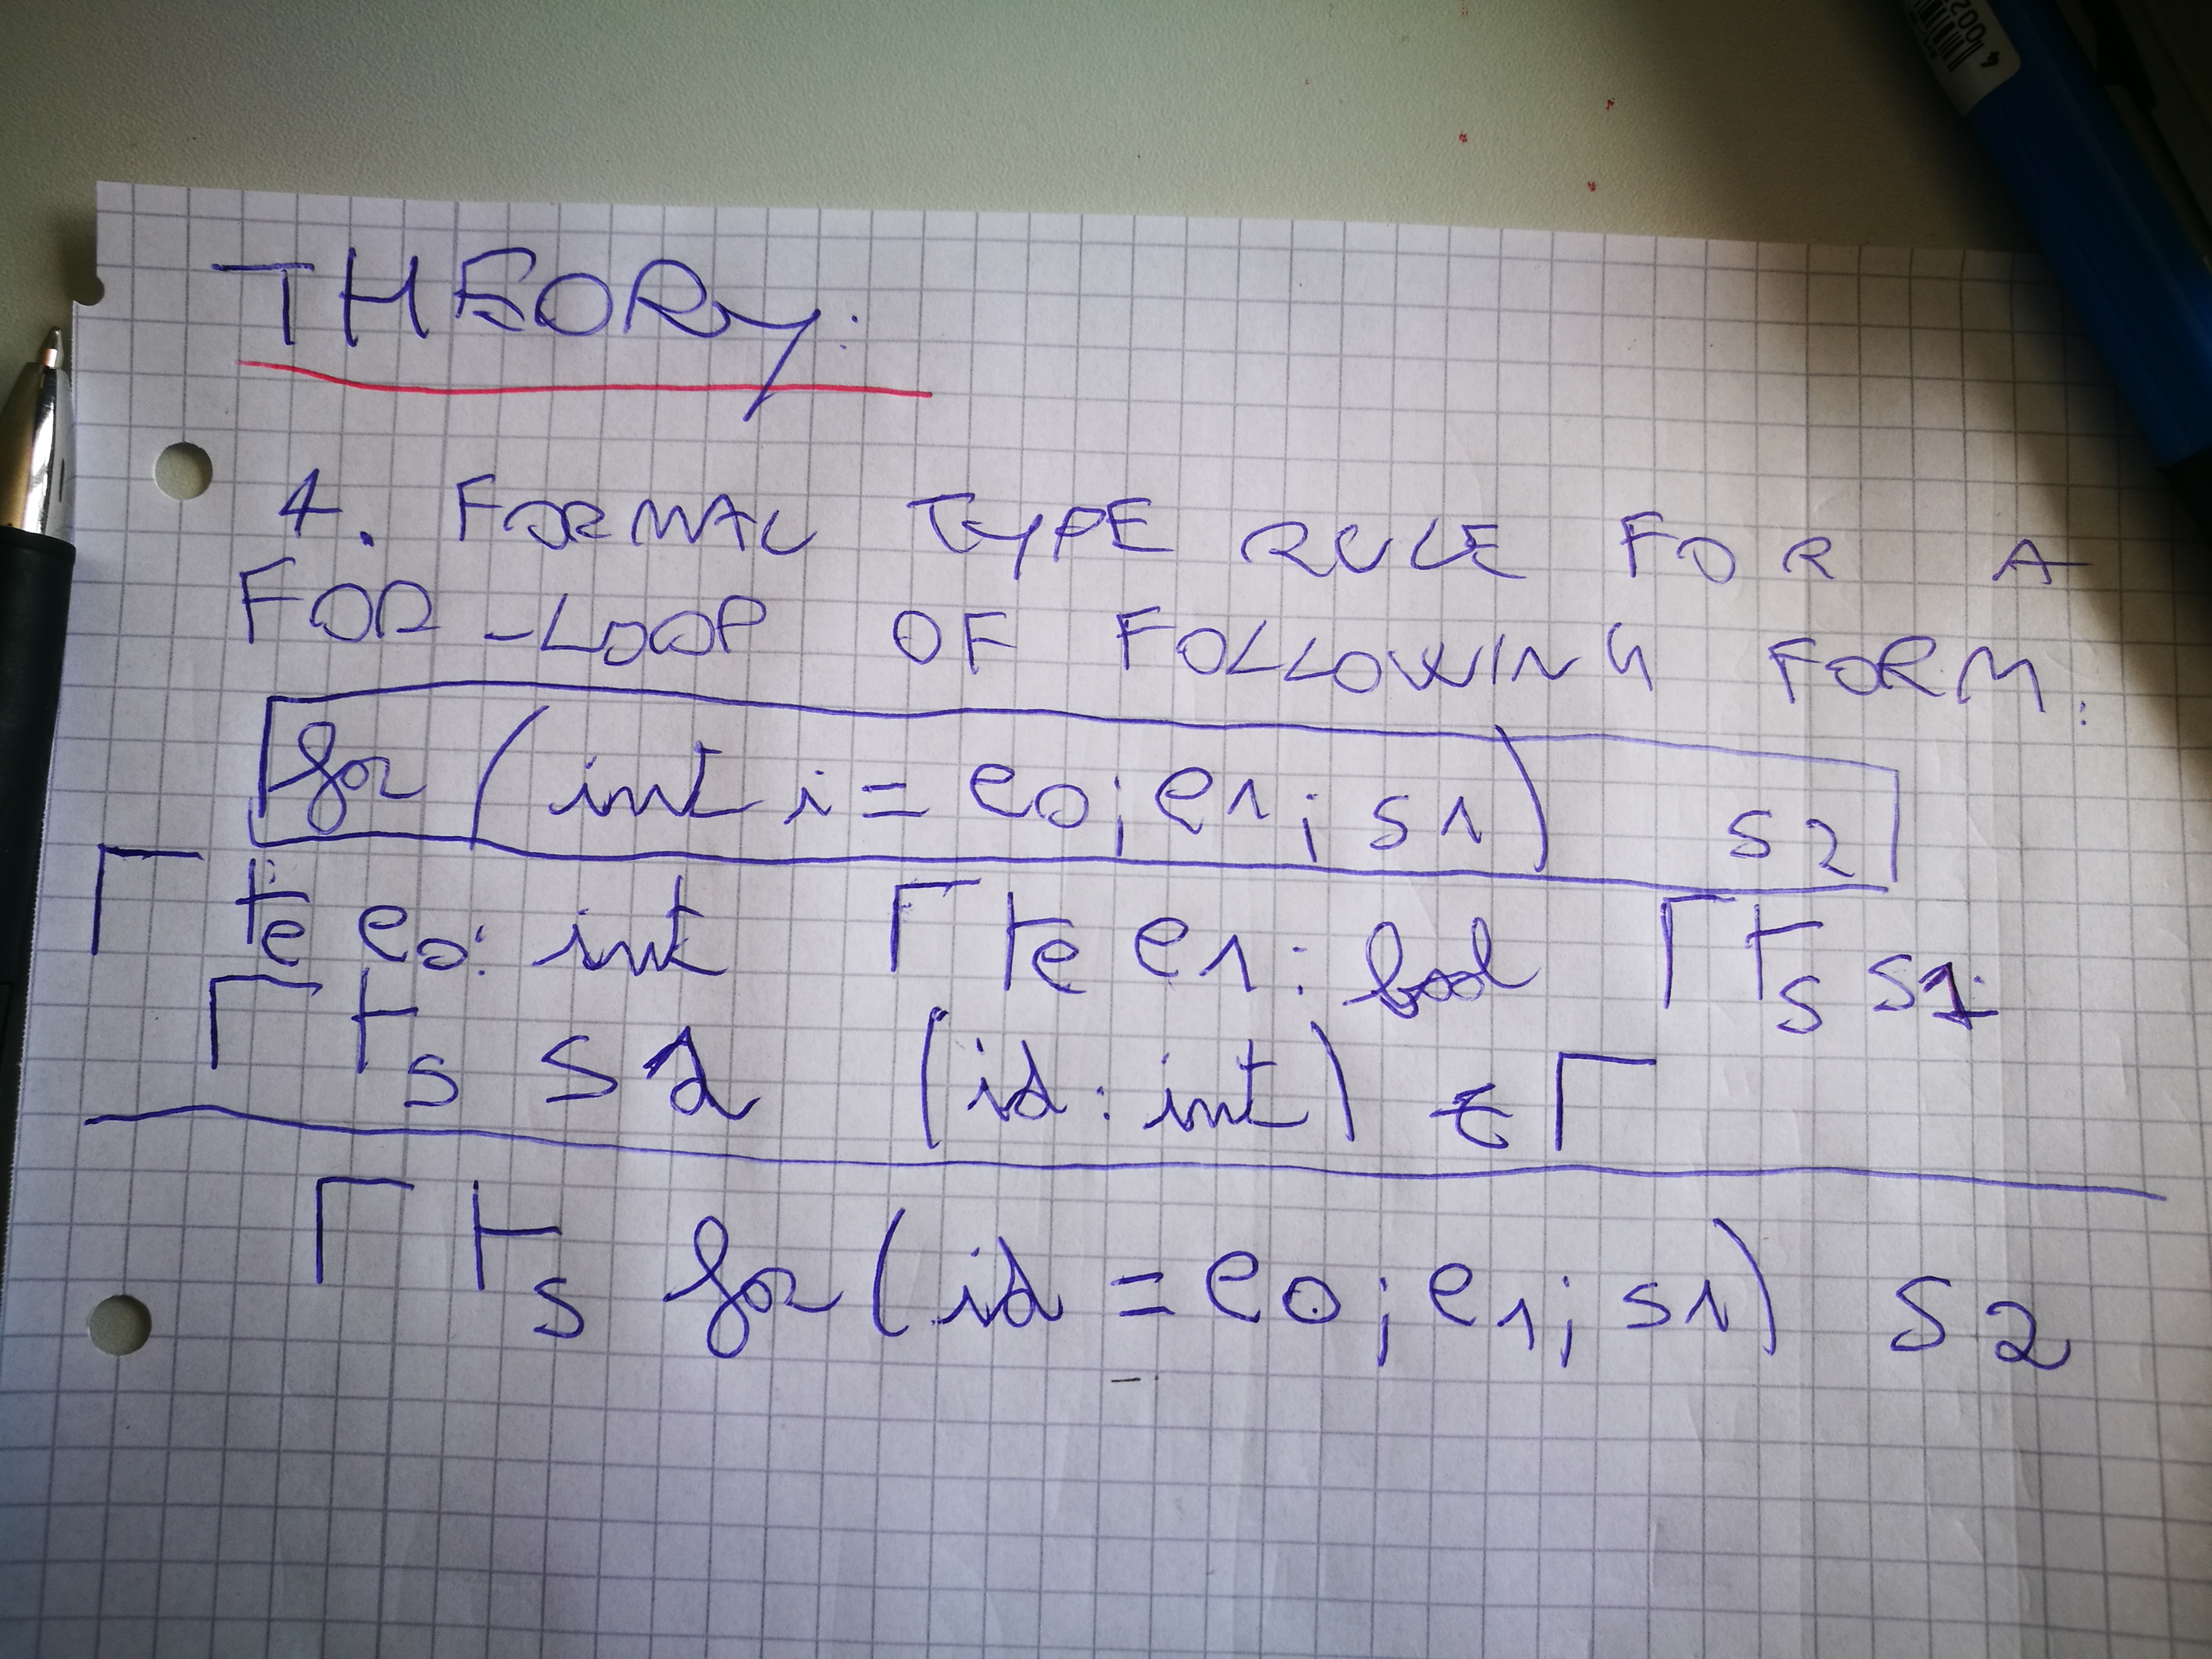 THEORY:
4. FORMAL TYPE RULE FOR A
FOR-LOOP OF FOLLOWING FORM:
for (int i = e0; e1; s1) s2
Γ ⊢e e0: int Γ ⊢e e1: bool Γ ⊢s s1
Γ ⊢s s2 (id: int) ∈ Γ
Γ ⊢s for (id = e0; e1; s1) s2